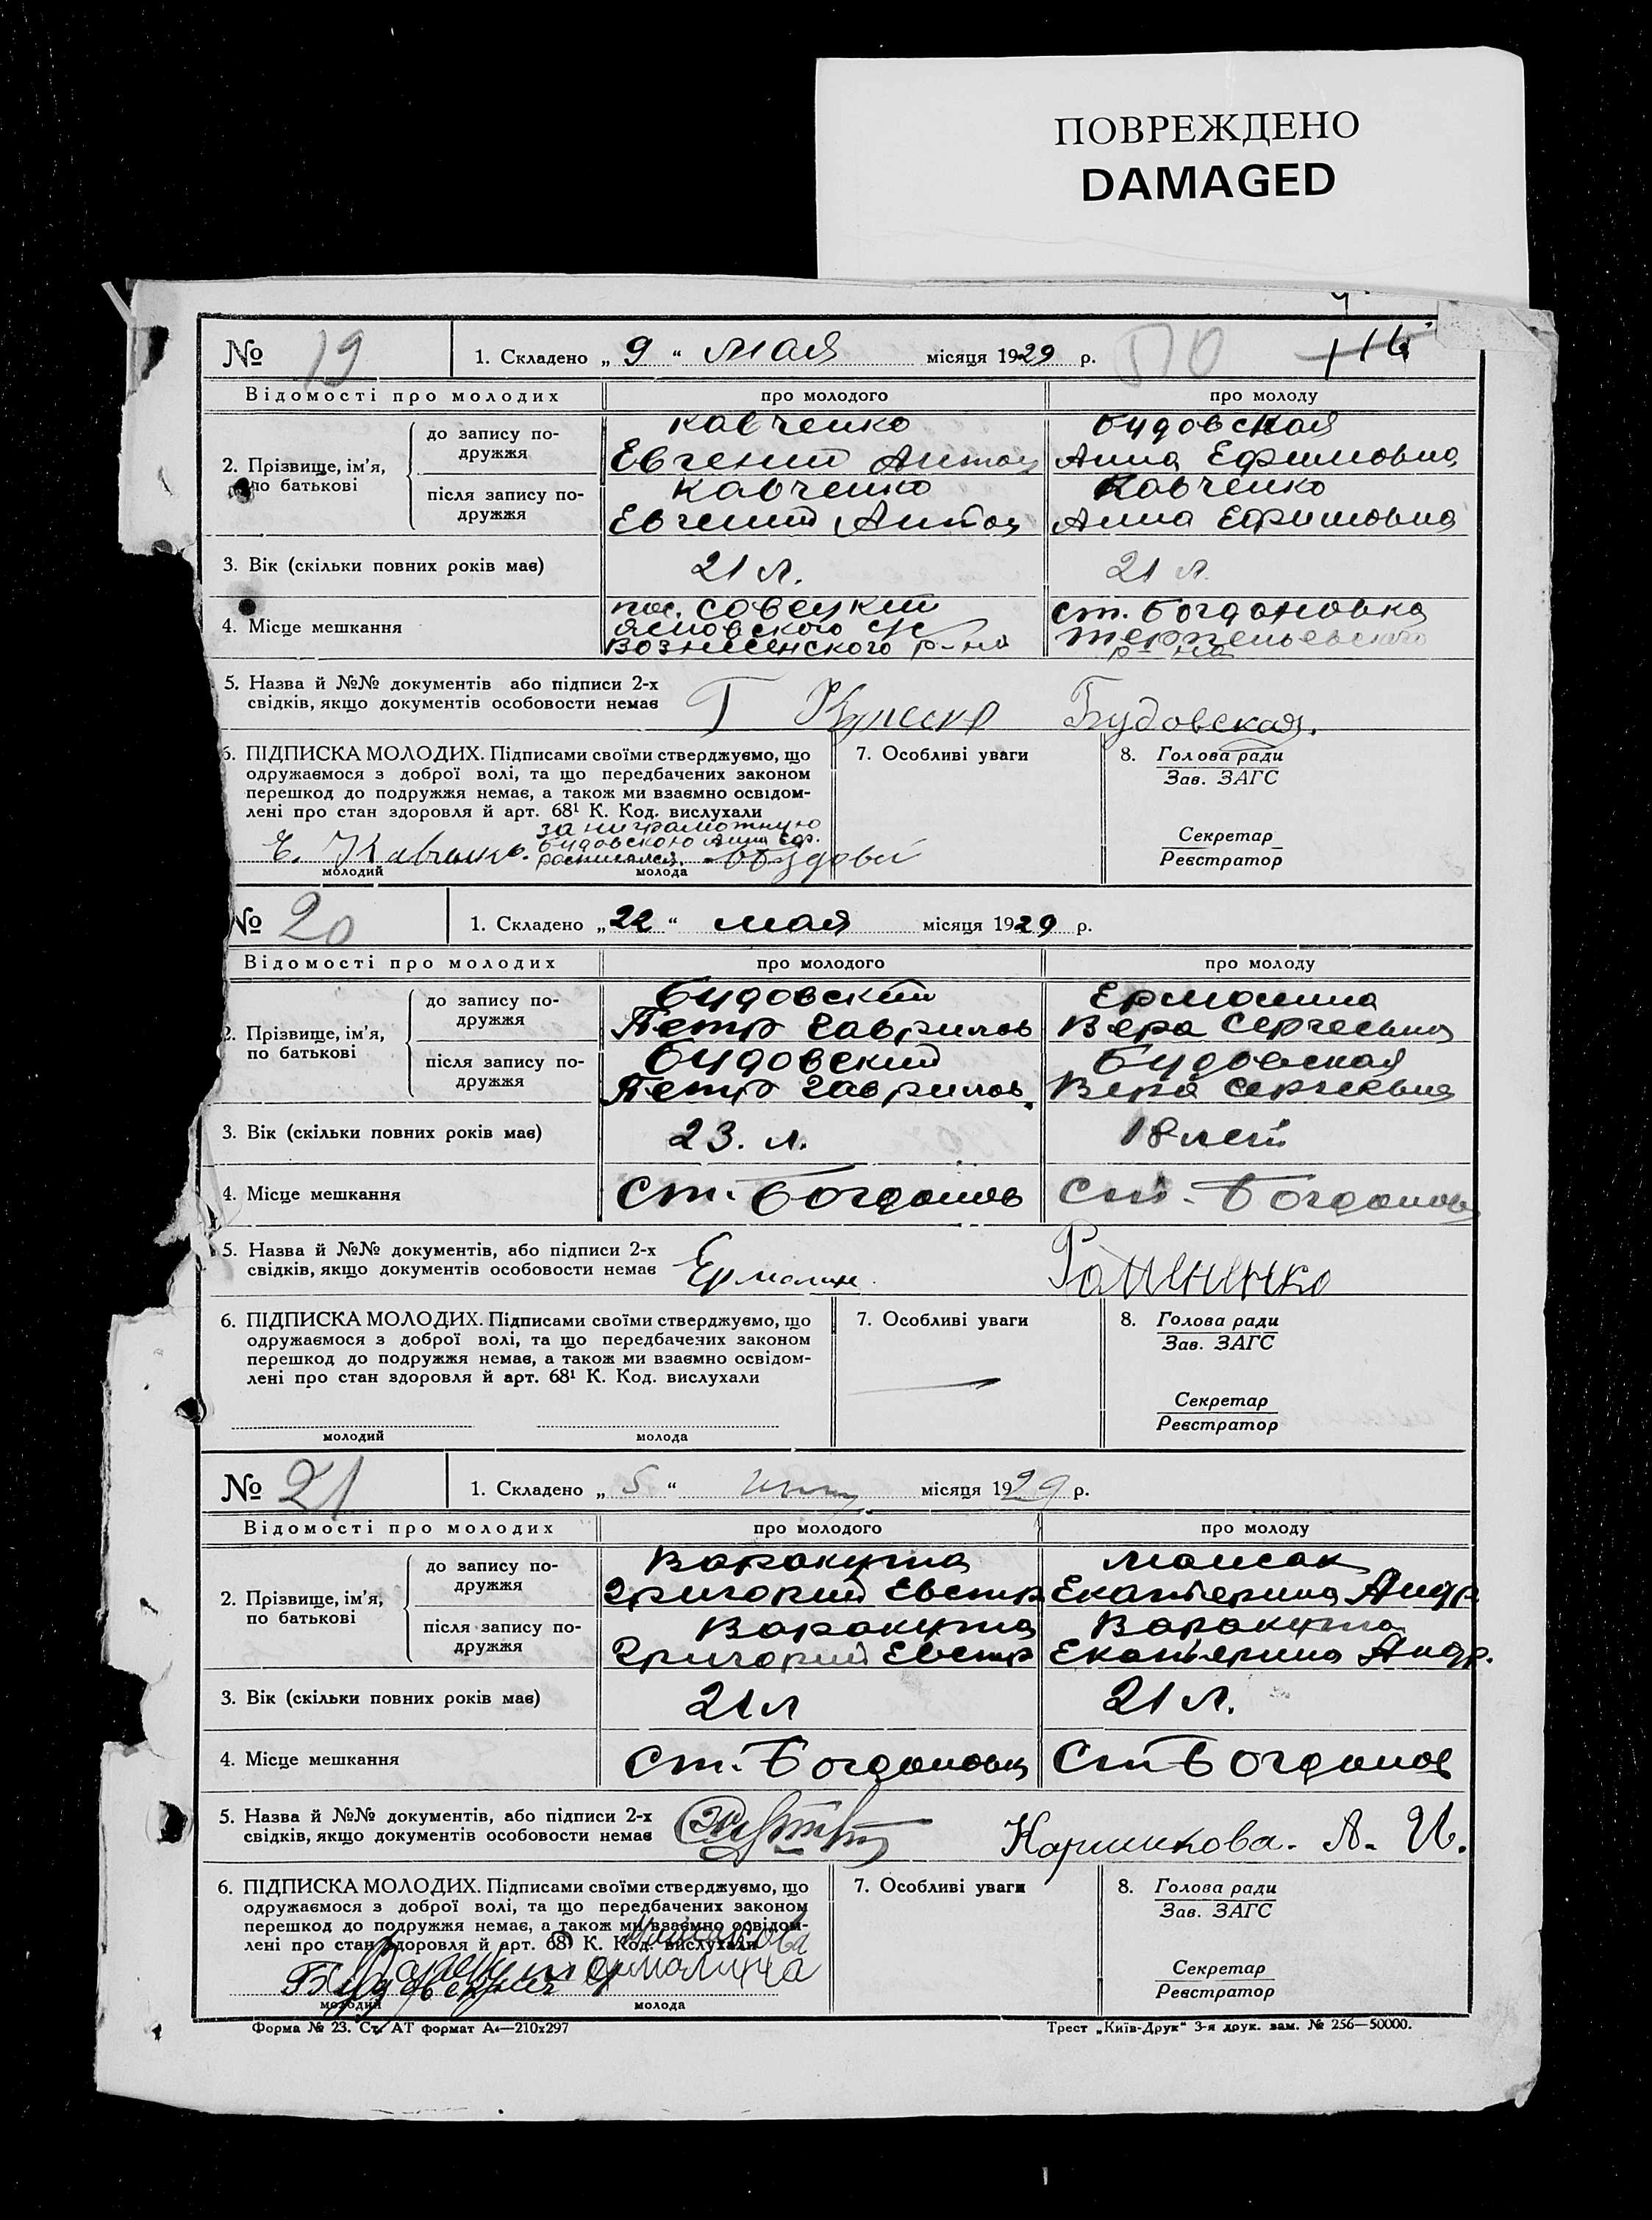 ПОВРЕЖДЕНО
DAMAGED
№ 19 1. Складено „ 9 “ мая місяця 1929 р. ПО 116
Відомості про молодих про молодого про молоду
2. Прізвище, ім'я, по батькові
до запису по-дружжя Кавченко Будовская
Евгений Антон Анна Ефимовна
після запису по-дружжя Кавченко Кавченко
Евгений Антон Анна Ефимовна
3. Вік (скільки повних років має) 21 л. 21 л.
4. Місце мешкання
пос. Совецкий ст. Богдановка
с/с Терпеньевского
Вознесенского р-на р-на
5. Назва й №№ документів або підписи 2-х
свідків, якщо документів особовости немає Будовская.
6. ПІДПИСКА МОЛОДИХ. Підписами своїми стверджуємо, що
одружаємося з доброї волі, та що передбачених законом
перешкод до подружжя немає, а також ми взаємно освідом-
лені про стан здоровля й арт. 68¹ К. Код. вислухали
за ниграмотную
Е. Кавченко. Будовскою Анна Еф.
росписался.
молодий молода
7. Особливі уваги
8. Голова ради
Зав. ЗАГС
Секретар
Реєстратор
№ 20 1. Складено „ 22 “ мая місяця 1929 р.
Відомості про молодих про молодого про молоду
2. Прізвище, ім'я, по батькові
до запису по-дружжя Будовский Ермолина
Петр Гаврилов Вера Сергеевна
після запису по-дружжя Будовский Будовская
Петр Гаврилов. Вера Сергеевна
3. Вік (скільки повних років має) 23. л. 18 лет
4. Місце мешкання ст. Богданов ст. Богданов
5. Назва й №№ документів, або підписи 2-х
свідків, якщо документів особовости немає Ермолин
6. ПІДПИСКА МОЛОДИХ. Підписами своїми стверджуємо, що
одружаємося з доброї волі, та що передбачених законом
перешкод до подружжя немає, а також ми взаємно освідом-
лені про стан здоровля й арт. 68¹ К. Код. вислухали
молодий молода
7. Особливі уваги
8. Голова ради
Зав. ЗАГС
Секретар
Реєстратор
№ 21 1. Складено „ 5 “ місяця 1929 р.
Відомості про молодих про молодого про молоду
2. Прізвище, ім'я, по батькові
до запису по-дружжя Варакута Моисак
Григорий Евстр Екатерина Андр.
після запису по-дружжя Варакута Варакута
Григорий Евстр Екатерина Андр.
3. Вік (скільки повних років має) 21 л 21 л.
4. Місце мешкання ст. Богдановка ст Богданов
5. Назва й №№ документів, або підписи 2-х
свідків, якщо документів особовости немає Каршикова. А. И.
6. ПІДПИСКА МОЛОДИХ. Підписами своїми стверджуємо, що
одружаємося з доброї волі, та що передбачених законом
перешкод до подружжя немає, а також ми взаємно освідом-
лені про стан здоровля й арт. 68¹ К. Код. вислухали
молодий молода
7. Особливі уваги
8. Голова ради
Зав. ЗАГС
Секретар
Реєстратор
Форма № 23. Ст. АТ формат А₄—210x297 Трест „Київ-Друк“ 3-я друк. зам. № 256—50000.